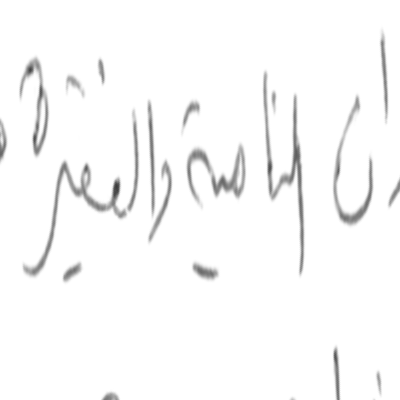 ان النامية والفقيرة